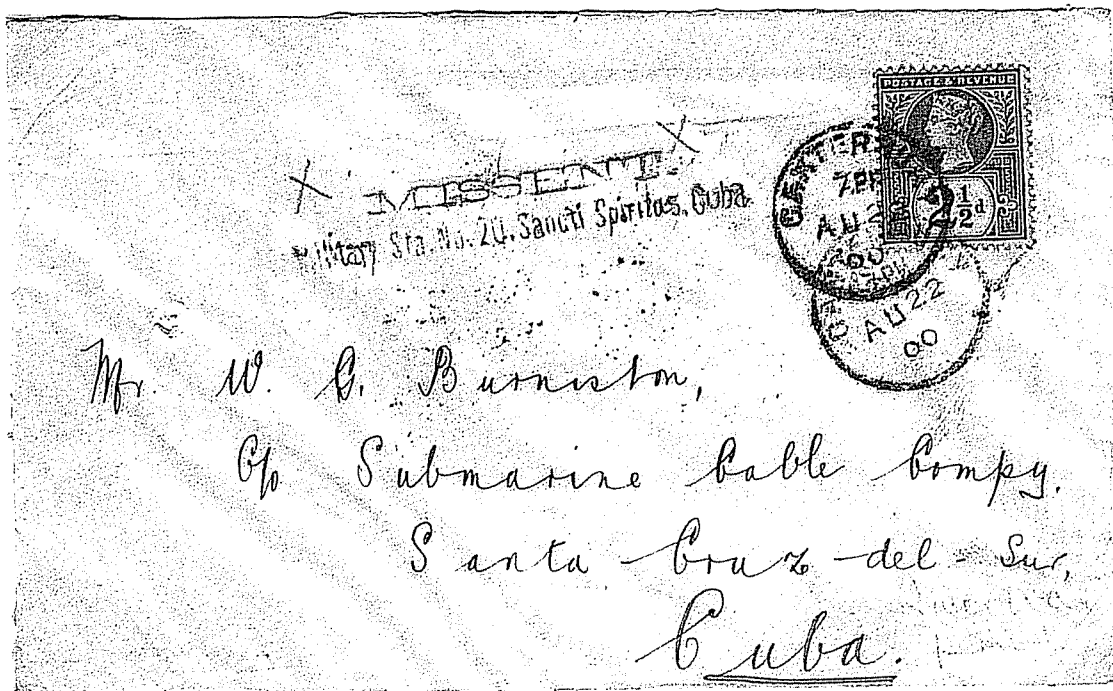 POSTAGE & REVENUE
2½d
7PM
AU 2
00
AU 22
00
MISSENT.
Military Sta. No. 20, Sancti Spiritus, Cuba.
Mr. W. G. Burniston,
C/o Submarine Cable Compy.
Santa-Cruz-del-Sur,
Cuba.